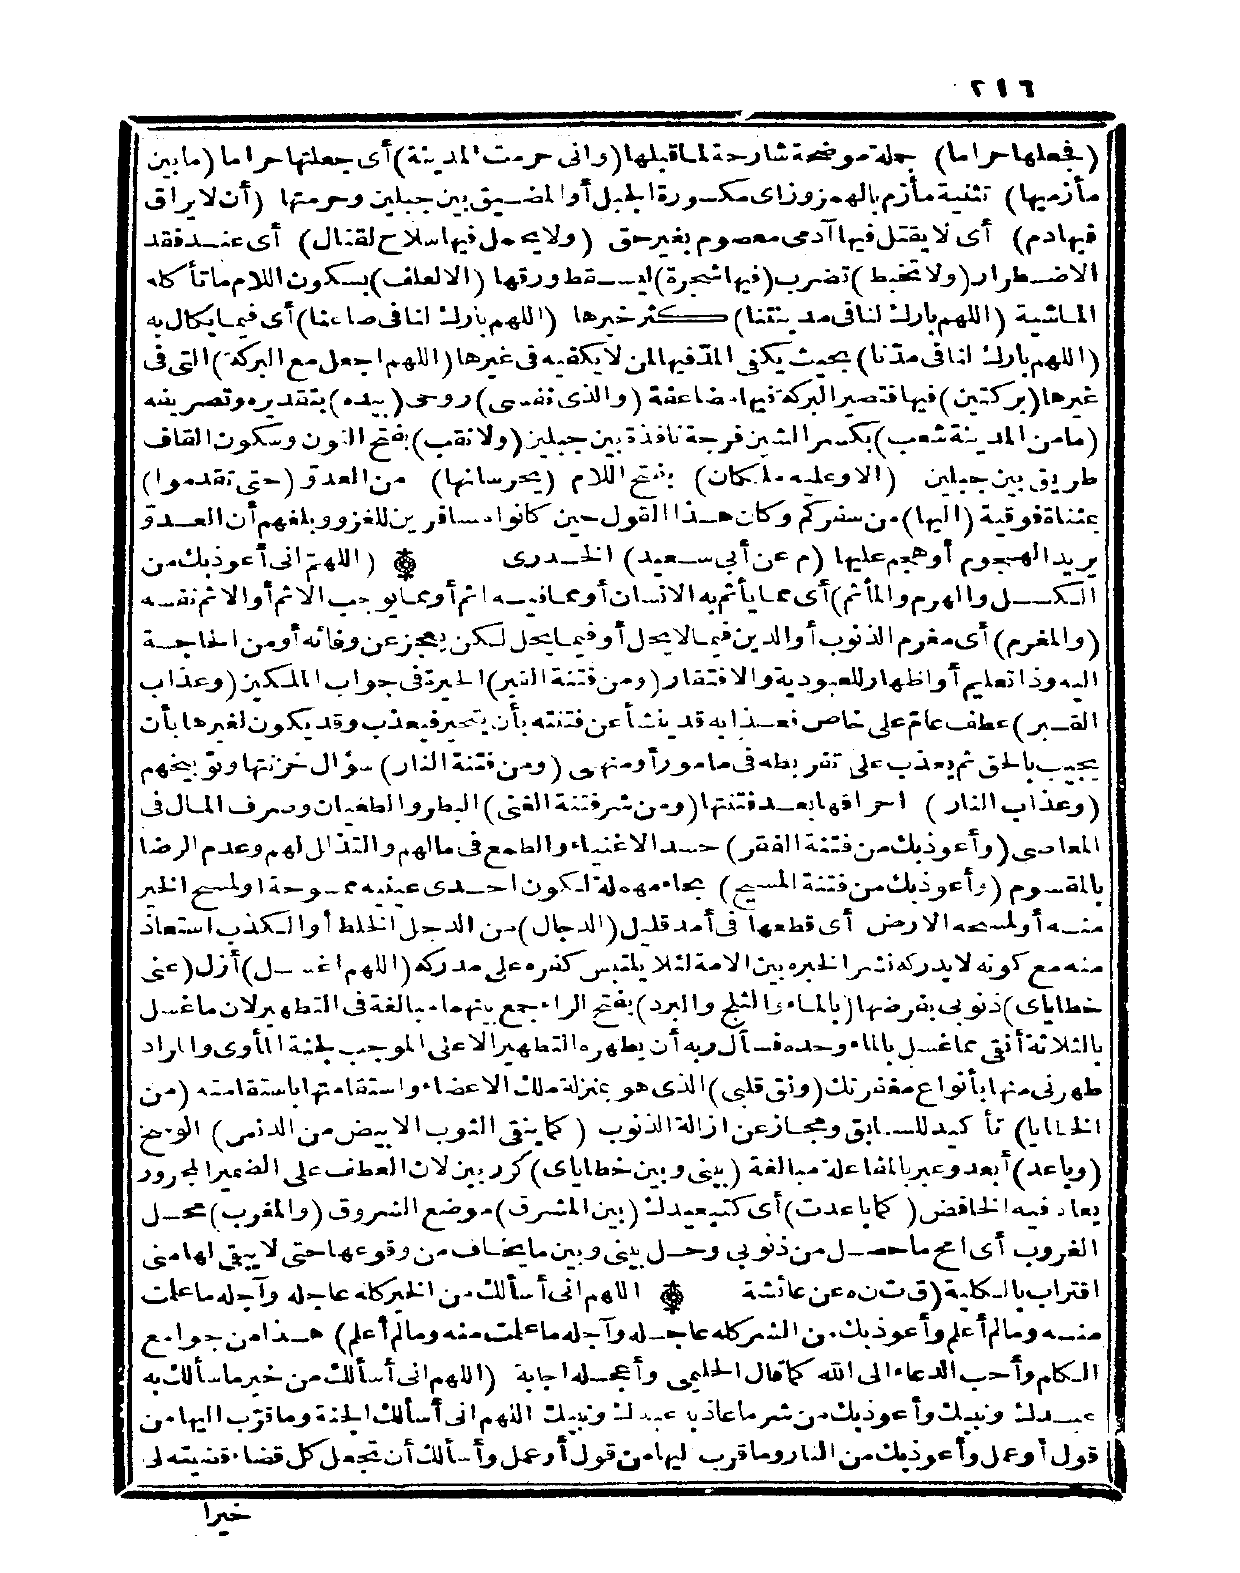 ٢١٦
(فجعلها حراما) جملة موضحة شارحة لما قبلها (وانى حرمت المدينة) أى جعلتها حراما (ما بين
مأزميها) تثنية مأزم بالهمز وزاى مكسورة الجبل أو المضيق بين جبلين وحرمتها (أن لا يراق
فيها دم) أى لا يقتل فيها آدمى معصوم بغير حق (ولا يحمل فيها سلاح لقتال) أى عند فقد
الاضطرار (ولا تخبط) تضرب (فيها شجرة) ليسقط ورقها (الا لعلف) بسكون اللام ما تأكله
الماشية (اللهم بارك لنا فى مدينتنا) كثر خيرها (اللهم بارك لنا فى صاعنا) أى فيما يكال به
(اللهم بارك لنا فى مدّنا) بحيث يكفى المدّ فيها لمن لا يكفيه فى غيرها (اللهم اجعل مع البركة) التى فى
غيرها (بركتين) فيها فتصير البركة فيها مضاعفة (والذى نفسى) روحى (بيده) بتقديره وتصريفه
(ما من المدينة شعب) بكسر الشين فرجة نافذة بين جبلين (ولا نقب) بفتح النون وسكون القاف
طريق بين جبلين (الا وعليه ملكان) بفتح اللام (يحرسانها) من العدوّ (حتى تقدموا)
بمثناة فوقية (اليها) من سفركم وكان هذا القول حين كانوا مسافرين للغزو وبلغهم أن العدوّ
يريد الهجوم أو هجم عليها (م عن أبي سعيد) الخدرى (اللهمّ انى أعوذ بك من
الكسل والهرم والمأثم) أى مما يأثم به الانسان أو مما فيه اثم أو مما يوجب الاثم أو الاثم نفسه
(والمغرم) أى مغرم الذنوب أو الدين فيما لا يحل أو فيما يحل لكن يعجز عن وفائه أو من الحاجة
اليه وذا تعليم أو اظهار للعبودية والافتقار (ومن فتنة القبر) الحيرة فى جواب الملكين (وعذاب
القبر) عطف عامّ على خاص فعذابه قد ينشأ عن فتنته بأن يتحير فيعذب وقد يكون لغيرها بأن
يجيب بالحق ثم يعذب على تفريطه فى مامور أو منهى (ومن فتنة النار) سؤال خزنتها وتوبيخهم
(وعذاب النار) احراقها بعد فتنتها (ومن شر فتنة الغنى) البطر والطغيان وصرف المال فى
المعاصى (وأعوذ بك من فتنة الفقر) حسد الاغنياء والطمع فى مالهم والتذلل لهم وعدم الرضا
بالمقسوم (وأعوذ بك من فتنة المسيح) بحاء مهملة لكون احدى عينيه ممسوحة أو لمسح الخير
منه أو لمسحه الارض أى قطعها فى أمد قليل (الدجال) من الدجل الخلط أو الكذب استعاذ
منه مع كونه لا يدركه نشر الخبره بين الامة لئلا يلتبس كفره على مدركه (اللهم اغسل) أزل (عنى
خطاياى) ذنوبي بفرضها (بالماء والثلج والبرد) بفتح الراء جمع بينهما مبالغة فى التطهير لان ما غسل
بالثلاثة أنقى مما غسل بالماء وحده فسأل ربه أن يطهره التطهير الاعلى الموجب لجنة المأوى والمراد
طهرنى منها بأنواع مغفرتك (ونق قلبى) الذى هو بمنزلة ملك الاعضاء واستقامتها باستقامته (من
الخطايا) تأكيد للسابق ومجاز عن ازالة الذنوب (كما ينقى الثوب الابيض من الدنس) الوسخ
(وباعد) أبعد وعبر بالمفاعلة مبالغة (بينى وبين خطاياى) كرر بين لان العطف على الضمير المجرور
يعاد فيه الخافض (كما باعدت) أى كتبعيدك (بين المشرق) موضع الشروق (والمغرب) محل
الغروب أى امح ما حصل من ذنوبي وحل بينى وبين ما يخاف من وقوعها حتى لا يبقى لها منى
اقتراب بالكلية (ق ت ن ه عن عائشة اللهم انى أسألك من الخير كله عاجله وآجله ما علمت
منه وما لم أعلم وأعوذ بك من الشر كله عاجله وآجله ما علمت منه وما لم أعلم) هذا من جوامع
الكلم وأحب الدعاء الى الله كما قال الحليمى وأعجله اجابة (اللهم انى أسألك من خير ما سألك به
عبدك ونبيك وأعوذ بك من شر ما عاذ به عبدك ونبيك اللهم انى أسألك الجنة وما قرّب اليها من
قول أو عمل وأعوذ بك من النار وما قرب اليها من قول أو عمل وأسألك أن تجعل كل قضاء قضيته لى
خيرا